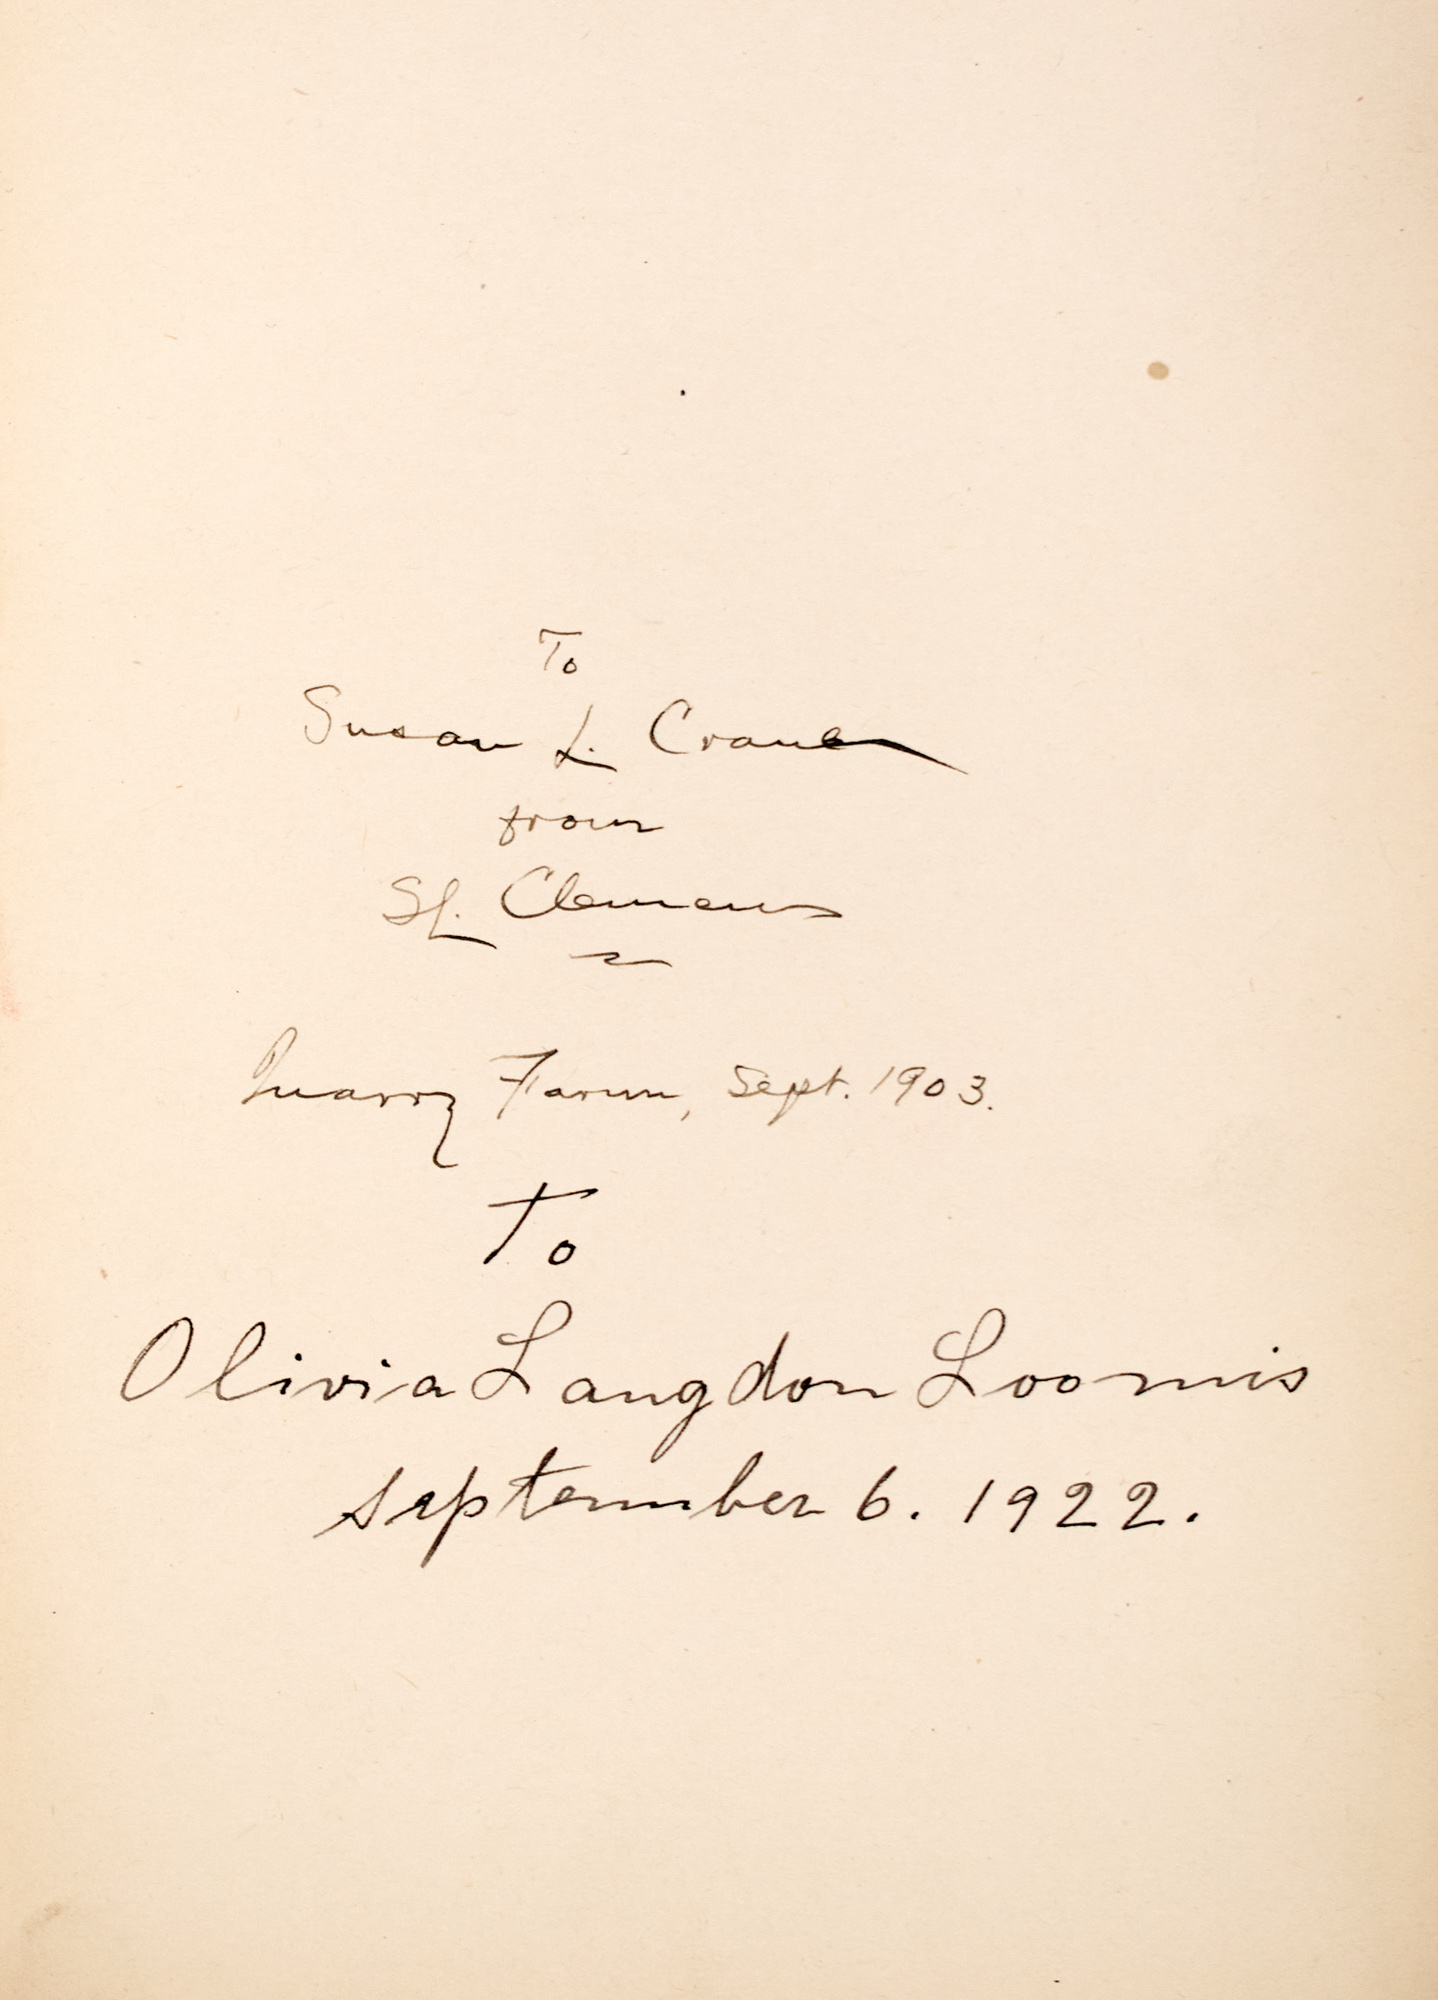 To
Susan L. Crane
from
SL. Clemens
Quarry Farm, Sept. 1903.
To
Olivia Langdon Loomis
september 6. 1922.